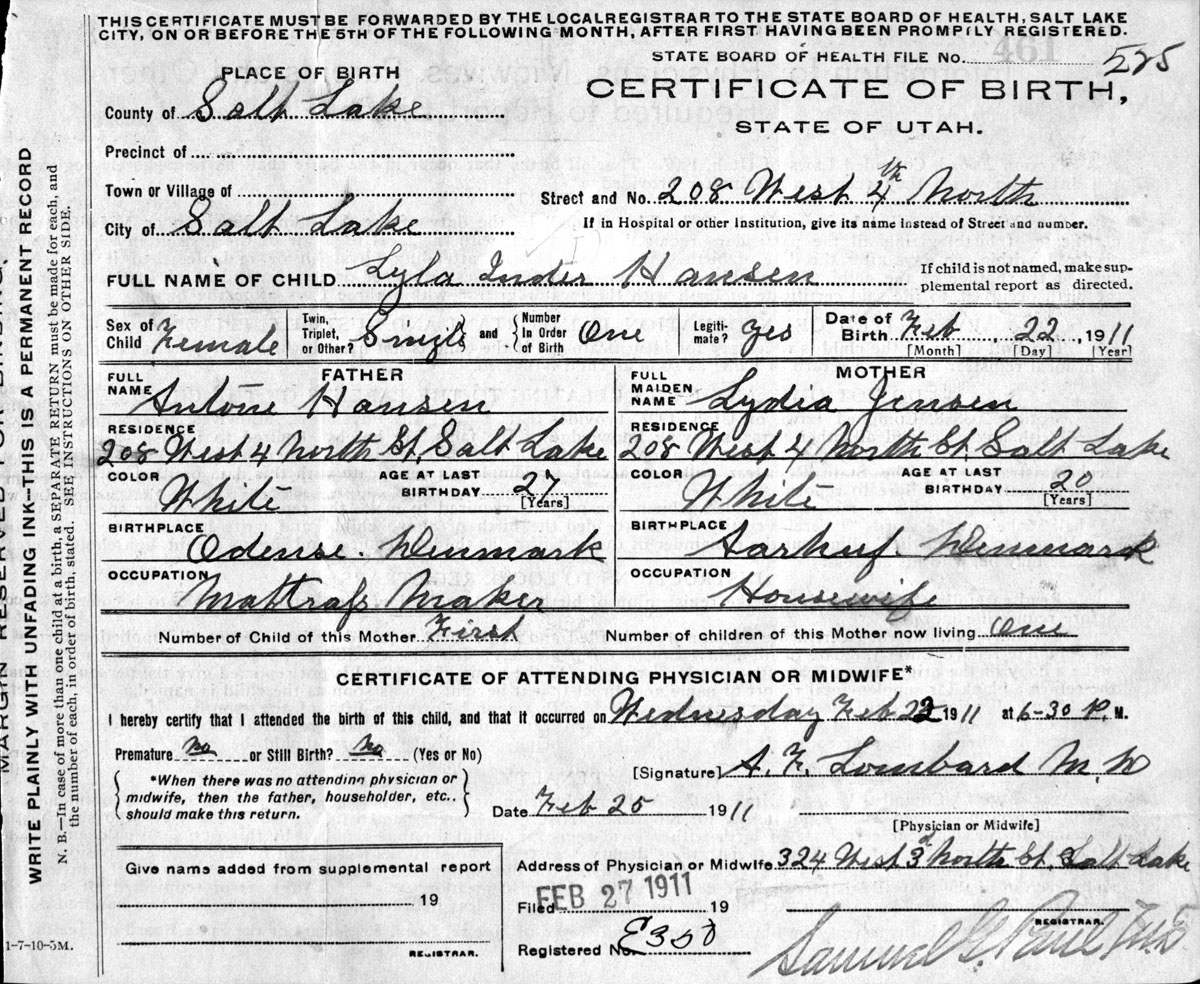 THIS CERTIFICATE MUST BE FORWARDED BY THE LOCALREGISTRAR TO THE STATE BOARD OF HEALTH, SALT LAKE
CITY, ON OR BEFORE THE 5TH OF THE FOLLOWING MONTH, AFTER FIRST HAVING BEEN PROMPILY REGISTERED.
STATE BOARD OF HEALTH FILE No. 461 525
PLACE OF BIRTH
CERTIFICATE OF BIRTH,
STATE OF UTAH.
County of Salt Lake
Precinct of
Town or Village of
Street and No. 208 West 4th North
City of Salt Lake
If in Hospital or other Institution, give its name instead of Street and number.
FULL NAME OF CHILD Lyla Inder Hansen
If child is not named, make sup-
plemental report as directed.
Sex of Child Female
Twin, Triplet, or Other? Single and Number In Order of Birth One
Legiti-mate? Yes
Date of Birth Feb 22, 1911
[Month] [Day] [Year]
FATHER
MOTHER
FULL NAME Antone Hansen
FULL MAIDEN NAME Lydia Jensen
RESIDENCE
208 West 4 North St. Salt Lake
RESIDENCE
208 West 4 North St. Salt Lake
COLOR White
AGE AT LAST BIRTHDAY 27
[Years]
COLOR White
AGE AT LAST BIRTHDAY 20
[Years]
BIRTHPLACE
Odense. Denmark
BIRTHPLACE
Aarhus. Denmark
OCCUPATION
Mattrass Maker
OCCUPATION
Housewife
Number of Child of this Mother First
Number of children of this Mother now living One
CERTIFICATE OF ATTENDING PHYSICIAN OR MIDWIFE*
I hereby certify that I attended the birth of this child, and that it occurred on Wednesday Feb 22 1911 at 6-30 P. M.
Premature No or Still Birth? No (Yes or No)
*When there was no attending physician or
midwife, then the father, householder, etc..
should make this return.
[Signature] A. F. Lombard M.W
Date Feb 25 1911
[Physician or Midwife]
Give name added from supplemental report
19
REGISTRAR.
Address of Physician or Midwife 324 West 3d North St. Salt Lake
Filed FEB 27 1911 19
REGISTRAR.
Registered No. E350
Samuel G. Paul
1-7-10-5M.
MARGIN RESERVED FOR BINDING.
WRITE PLAINLY WITH UNFADING INK-THIS IS A PERMANENT RECORD
N. B.—In case of more than one child at a birth, a SEPARATE RETURN must be made for each, and
the number of each, in order of birth, stated. SEE INSTRUCTIONS ON OTHER SIDE.